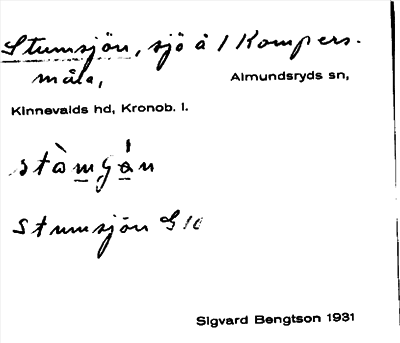 Stumsjön, sjö å 1 Kompers-
måla,
Almundsryds sn,
Kinnevalds hd, Kronob. l.
stòmgán
Stumsjön G 10
Sigvard Bengtson 1931